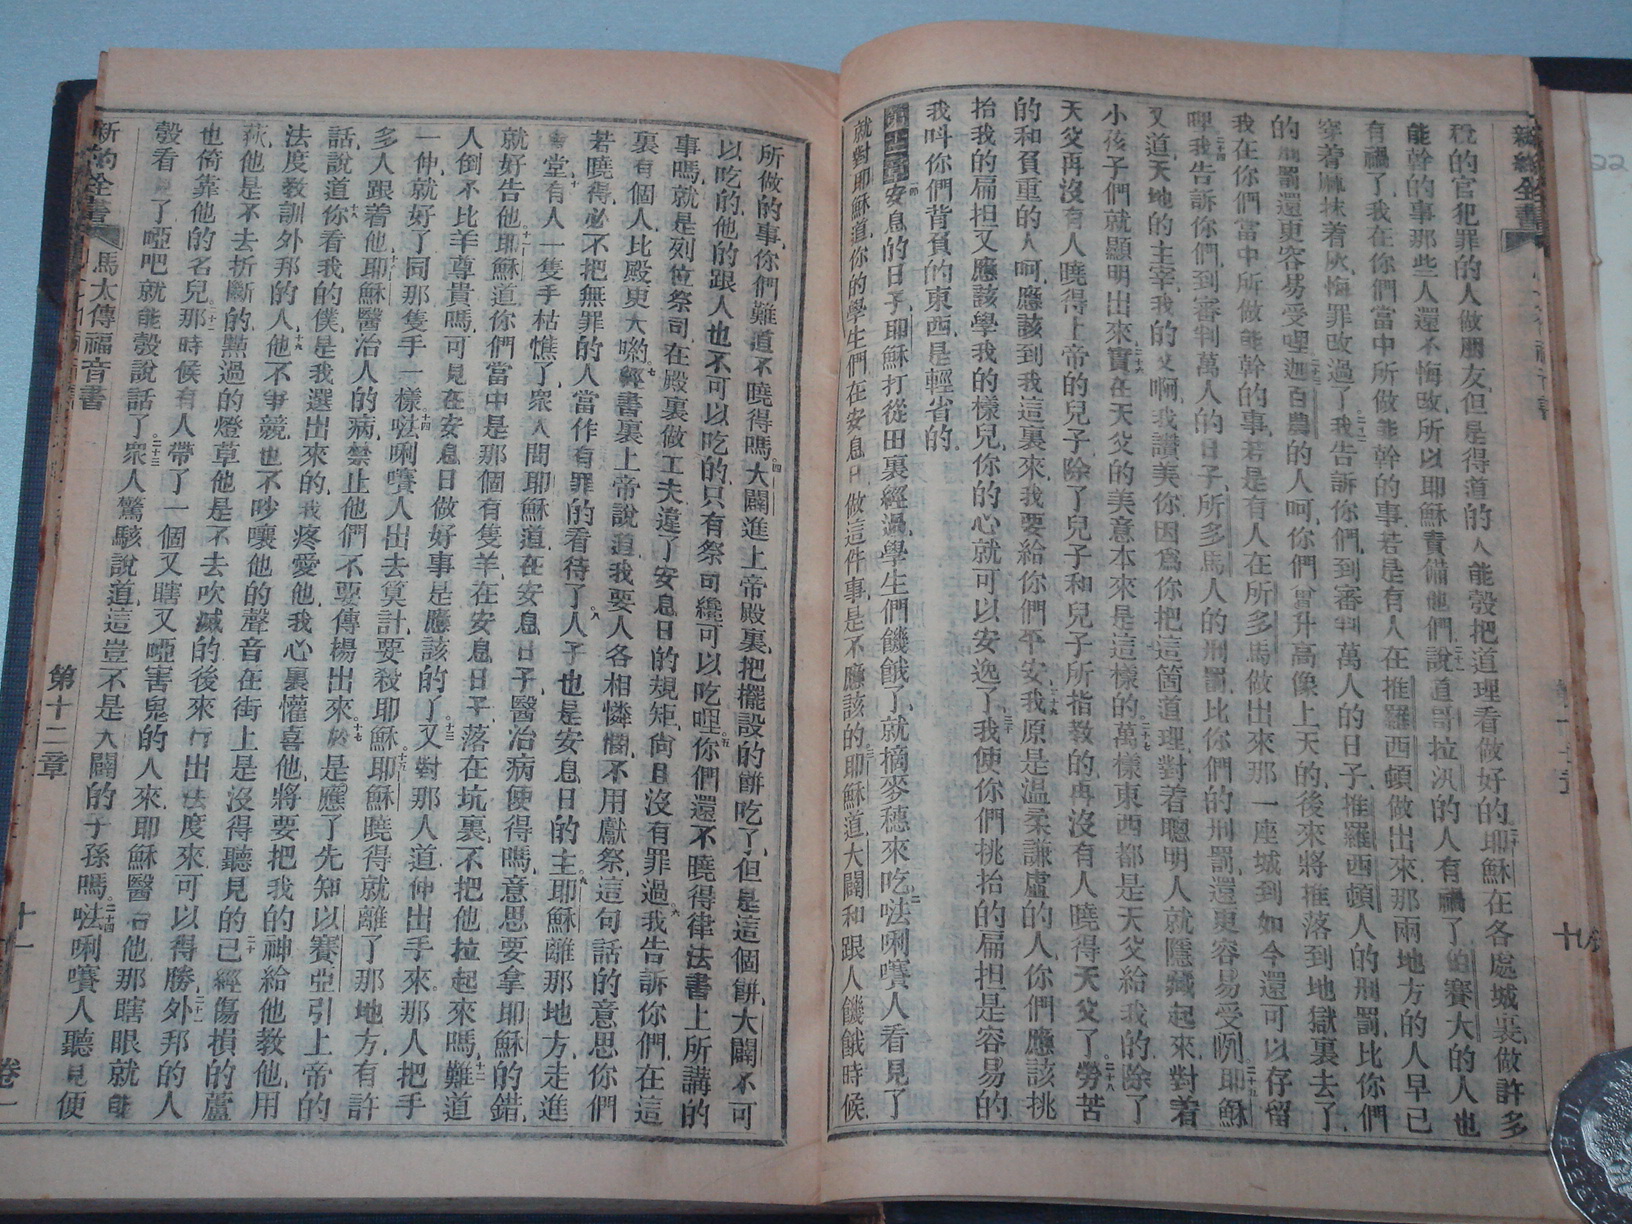 稅的官犯罪的人做朋友但是得道的人能彀把道理看做好的耶穌在各處城裏做許多
能幹的事那些人還不悔改所以耶穌責備他們說道哥拉汛的人有禍了伯賽大的人也
有禍了我在你們當中所做能幹的事若是有人在推羅西頓做出來那兩地方的人早已
穿着麻抹着灰悔罪改過了我告訴你們到審判萬人的日子推羅西頓人的刑罰比你們
的刑罰還更容易受哩迦百農的人呵你們冒升高像上天的後來將推落到地獄裏去了
我在你們當中所做能幹的事若是有人在所多馬做出來那一座城到如今還可以存留
哩我告訴你們到審判萬人的日子所多馬人的刑罰比你們的刑罰還更容易受咧耶穌
又道天地的主宰我的父啊我讚美你因為你把這箇道理對着聰明人就隱藏起來對着
小孩子們就顯明出來實在天父的美意本來是這樣的萬樣東西都是天父給我的除了
天父再沒有人曉得上帝的兒子除了兒子和兒子所指教的再沒有人曉得天父了勞苦
的和負重的人呵應該到我這裏來我要給你們平安我原是溫柔謙虛的人你們應該挑
抬我的扁担又應該學我的樣兒你的心就可以安逸了我使你們挑抬的扁担是容易的
我呌你們背負的東西是輕省的
安息的日子耶穌打從田裏經過學生們饑餓了就摘麥穗來吃㖿唎㘔人看見了
就對耶穌道你的學生們在安息日做這件事是不應該的耶穌道大闢和跟人饑餓時候
所做的事你們難道不曉得嗎大闢進上帝殿裏把擺設的餅吃了但是這個餅大闢不可
以吃的他的跟人也不可以吃的只有祭司纔可以吃哩你們還不曉得律法書上所講的
事嗎就是列位祭司在殿裏做工夫違了安息日的規矩尙且沒有罪過我告訴你們在這
裏有個人比殿更大喲經書裏上帝說道我要人各相憐憫不用獻祭這句話的意思你們
若曉得必不把無罪的人當作有罪的看待了人子也是安息日的主耶穌離那地方走進
會堂有人一隻手枯憔了衆人問耶穌道在安息日子醫冶病使得嗎意思要拿耶穌的錯
就好告他耶穌道你們當中是那個有隻羊在安息日子落在坑裏不把他拉起來嗎難道
人倒不比羊尊貴嗎可見在安息日做好事是應該的了又對那人道伸出手來那人把手
一伸就好了同那隻手一樣㖿唎㘔人出去算計要殺耶穌耶穌曉得就離了那地方有許
多人跟着他耶穌醫冶人的病禁止他們不要傳楊出來於是應了先知以賽亞引上帝的
話說道你看我的僕是我選出來的我疼愛他我心裏懽喜他將要把我的神給他敎他用
法度敎訓外邦的人他不爭競也不吵嚷他的聲音在街上是沒得聽見的已經傷損的蘆
荻他是不去折斷的㸃過的燈草他是不去吹滅的後來行出法度來可以得勝外邦的人
也倚靠他的名兒那時候有人帶了一個又瞎又啞害鬼的人來耶穌醫治他那瞎眼就能
彀看見了啞吧就能彀說話了衆人驚駭說道這豈不是大闢的子孫嗎㖿唎㘔人聽見便
新約全書 馬太傳福音書 第十二章 十一 卷一